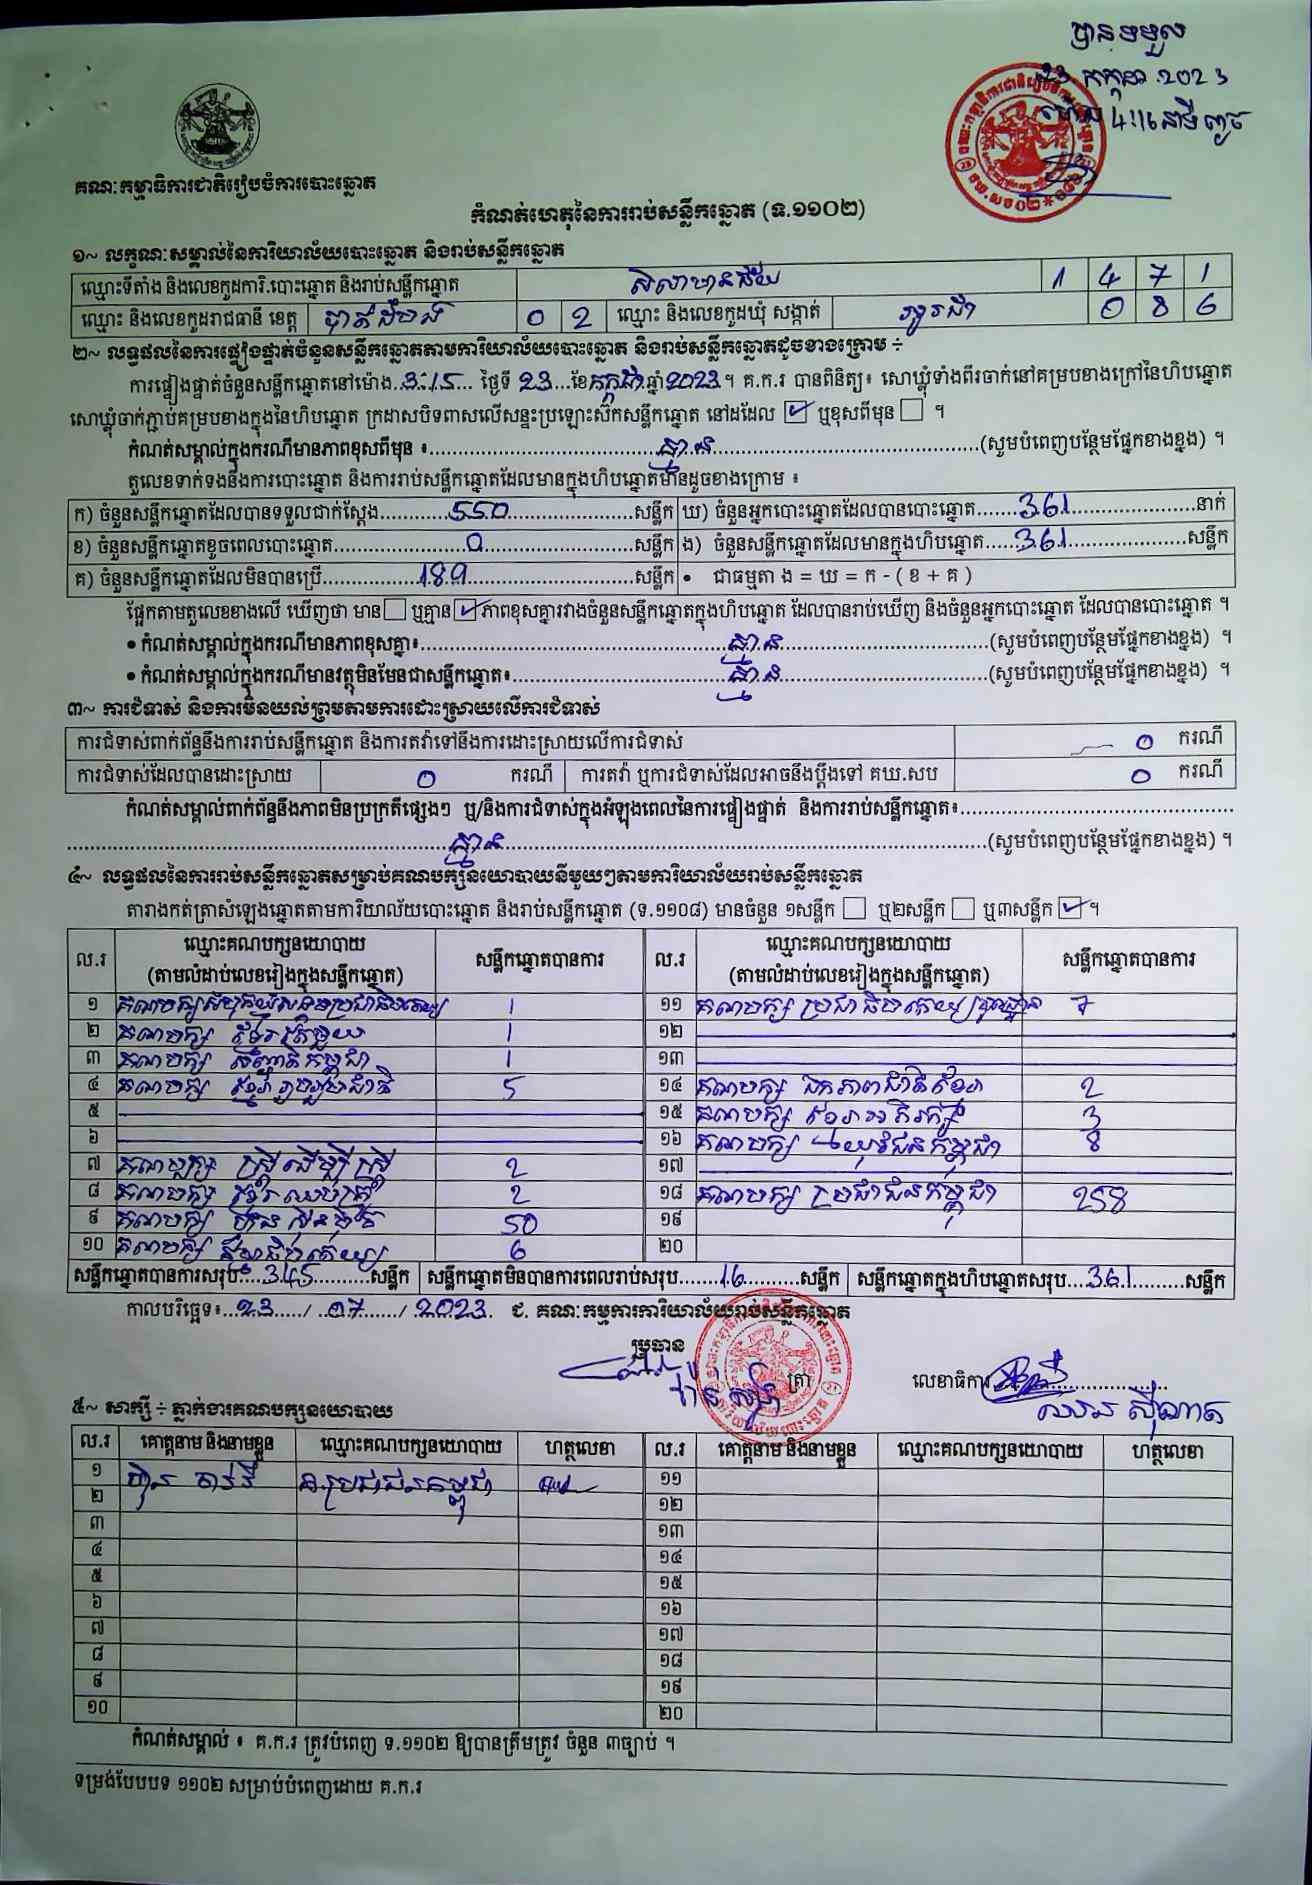 បានទទួល
២៣ កក្កដា 2023
ម៉ោង 4:16 នាទី ល្ងាច
គណៈកម្មាធិការជាតិរៀបចំការបោះឆ្នោត
កំណត់ហេតុនៃការរាប់សន្លឹកឆ្នោត (ទ.១១០២)
១~ លក្ខណៈសម្គាល់នៃការិយាល័យបោះឆ្នោត និងរាប់សន្លឹកឆ្នោត
ឈ្មោះទីតាំង និងលេខកូដការិ.បោះឆ្នោត និងរាប់សន្លឹកឆ្នោត សិលាមានជ័យ 1 4 7 1
ឈ្មោះ និងលេខកូដរាជធានី ខេត្ត បាត់ដំបង 0 2 ឈ្មោះ និងលេខកូដឃុំ សង្កាត់ 0 8 6
២~ លទ្ធផលនៃការផ្ទៀងផ្ទាត់ចំនួនសន្លឹកឆ្នោតតាមការិយាល័យបោះឆ្នោត និងរាប់សន្លឹកឆ្នោតដូចខាងក្រោម ÷
ការផ្ទៀងផ្ទាត់ចំនួនសន្លឹកឆ្នោតនៅម៉ោង..3:15... ថ្ងៃទី 23...ខែកក្កដាឆ្នាំ2023។ គ.ក.រ បានពិនិត្យ៖ សោឃ្លុំទាំងពីរចាក់នៅគម្របខាងក្រៅនៃហិបឆ្នោត
សោឃ្លុំចាក់ភ្ជាប់គម្របខាងក្នុងនៃហិបឆ្នោត ក្រដាសបិទពាសលើសន្ទះប្រឡោះស៊កសន្លឹកឆ្នោត នៅដដែល ☑ ឬខុសពីមុន ☐ ។
កំណត់សម្គាល់ក្នុងករណីមានភាពខុសពីមុន ៖..........គ្មាន..........(សូមបំពេញបន្ថែមផ្នែកខាងខ្នង) ។
តួលេខទាក់ទងនឹងការបោះឆ្នោត និងការរាប់សន្លឹកឆ្នោតដែលមានក្នុងហិបឆ្នោតមានដូចខាងក្រោម ៖
ក) ចំនួនសន្លឹកឆ្នោតដែលបានទទួលជាក់ស្តែង..........550..........សន្លឹក ឃ) ចំនួនអ្នកបោះឆ្នោតដែលបានបោះឆ្នោត.......361..........នាក់
ខ) ចំនួនសន្លឹកឆ្នោតខូចពេលបោះឆ្នោត..........0..........សន្លឹក ង) ចំនួនសន្លឹកឆ្នោតដែលមានក្នុងហិបឆ្នោត......361..........សន្លឹក
គ) ចំនួនសន្លឹកឆ្នោតដែលមិនបានប្រើ..........189..........សន្លឹក • ជាធម្មតា ង = ឃ = ក - ( ខ + គ )
ផ្អែកតាមតួលេខខាងលើ ឃើញថា មាន ☐ ឬគ្មាន ☑ ភាពខុសគ្នារវាងចំនួនសន្លឹកឆ្នោតក្នុងហិបឆ្នោត ដែលបានរាប់ឃើញ និងចំនួនអ្នកបោះឆ្នោត ដែលបានបោះឆ្នោត ។
• កំណត់សម្គាល់ក្នុងករណីមានភាពខុសគ្នា៖..........គ្មាន..........(សូមបំពេញបន្ថែមផ្នែកខាងខ្នង) ។
• កំណត់សម្គាល់ក្នុងករណីមានវត្ថុមិនមែនជាសន្លឹកឆ្នោត៖..........គ្មាន..........(សូមបំពេញបន្ថែមផ្នែកខាងខ្នង) ។
៣~ ការជំទាស់ និងការមិនយល់ព្រមតាមការដោះស្រាយលើការជំទាស់
ការជំទាស់ពាក់ព័ន្ធនឹងការរាប់សន្លឹកឆ្នោត និងការតវ៉ាទៅនឹងការដោះស្រាយលើការជំទាស់ 0 ករណី
ការជំទាស់ដែលបានដោះស្រាយ 0 ករណី ការតវ៉ា ឬការជំទាស់ដែលអាចនឹងប្តឹងទៅ គឃ.សប 0 ករណី
កំណត់សម្គាល់ពាក់ព័ន្ធនឹងភាពមិនប្រក្រតីផ្សេងៗ ឬ/និងការជំទាស់ក្នុងអំឡុងពេលនៃការផ្ទៀងផ្ទាត់ និងការរាប់សន្លឹកឆ្នោត៖..........
..........គ្មាន..........(សូមបំពេញបន្ថែមផ្នែកខាងខ្នង) ។
៤~ លទ្ធផលនៃការរាប់សន្លឹកឆ្នោតសម្រាប់គណបក្សនយោបាយនីមួយៗតាមការិយាល័យរាប់សន្លឹកឆ្នោត
តារាងកត់ត្រាសំឡេងឆ្នោតតាមការិយាល័យបោះឆ្នោត និងរាប់សន្លឹកឆ្នោត (ទ.១១០៨) មានចំនួន ១សន្លឹក ☐ ឬ២សន្លឹក ☐ ឬ៣សន្លឹក ☑ ។
ល.រ ឈ្មោះគណបក្សនយោបាយ (តាមលំដាប់លេខរៀងក្នុងសន្លឹកឆ្នោត) សន្លឹកឆ្នោតបានការ ល.រ ឈ្មោះគណបក្សនយោបាយ (តាមលំដាប់លេខរៀងក្នុងសន្លឹកឆ្នោត) សន្លឹកឆ្នោតបានការ
១ គណបក្សសំបុកឃ្មុំសង្គមប្រជាធិបតេយ្យ 1 ១១ គណបក្ស ប្រជាធិបតេយ្យមូលដ្ឋាន 7
២ គណបក្ស ខ្មែរតែមួយ 1 ១២
៣ គណបក្ស ជំនាន់ជាតិកម្ពុជា 1 ១៣
៤ គណបក្ស ខ្មែររួបរួមជាតិ 5 ១៤ គណបក្ស ឯកភាពជាតិខ្មែរ 2
៥ ១៥ គណបក្ស ខ្មែរអភិរក្ស 3
៦ ១៦ គណបក្ស យុវជនកម្ពុជា 8
៧ គណបក្ស ស្ត្រីដើម្បីស្ត្រី 2 ១៧
៨ គណបក្ស ខ្មែរឈប់ក្រ 2 ១៨ គណបក្ស ប្រជាជនកម្ពុជា 258
៩ គណបក្ស ហ៊្វុនស៊ិនប៉ិច 50 ១៩
១០ គណបក្ស ធម្មាធិបតេយ្យ 6 ២០
សន្លឹកឆ្នោតបានការសរុប....345..........សន្លឹក សន្លឹកឆ្នោតមិនបានការពេលរាប់សរុប.......16..........សន្លឹក សន្លឹកឆ្នោតក្នុងហិបឆ្នោតសរុប...361.........សន្លឹក
កាលបរិច្ឆេទ៖..23...../...07....../.2023. ជ. គណៈកម្មការការិយាល័យរាប់សន្លឹកឆ្នោត
ប្រធាន
ត្រា លេខាធិការ
៥~ សាក្សី ÷ ភ្នាក់ងារគណបក្សនយោបាយ
ល.រ គោត្តនាម និងនាមខ្លួន ឈ្មោះគណបក្សនយោបាយ ហត្ថលេខា ល.រ គោត្តនាម និងនាមខ្លួន ឈ្មោះគណបក្សនយោបាយ ហត្ថលេខា
១ គ.ប្រជាជនកម្ពុជា ១១
២ ១២
៣ ១៣
៤ ១៤
៥ ១៥
៦ ១៦
៧ ១៧
៨ ១៨
៩ ១៩
១០ ២០
កំណត់សម្គាល់ ៖ គ.ក.រ ត្រូវបំពេញ ទ.១១០២ ឱ្យបានត្រឹមត្រូវ ចំនួន ៣ច្បាប់ ។
ទម្រង់បែបបទ ១១០២ សម្រាប់បំពេញដោយ គ.ក.រ